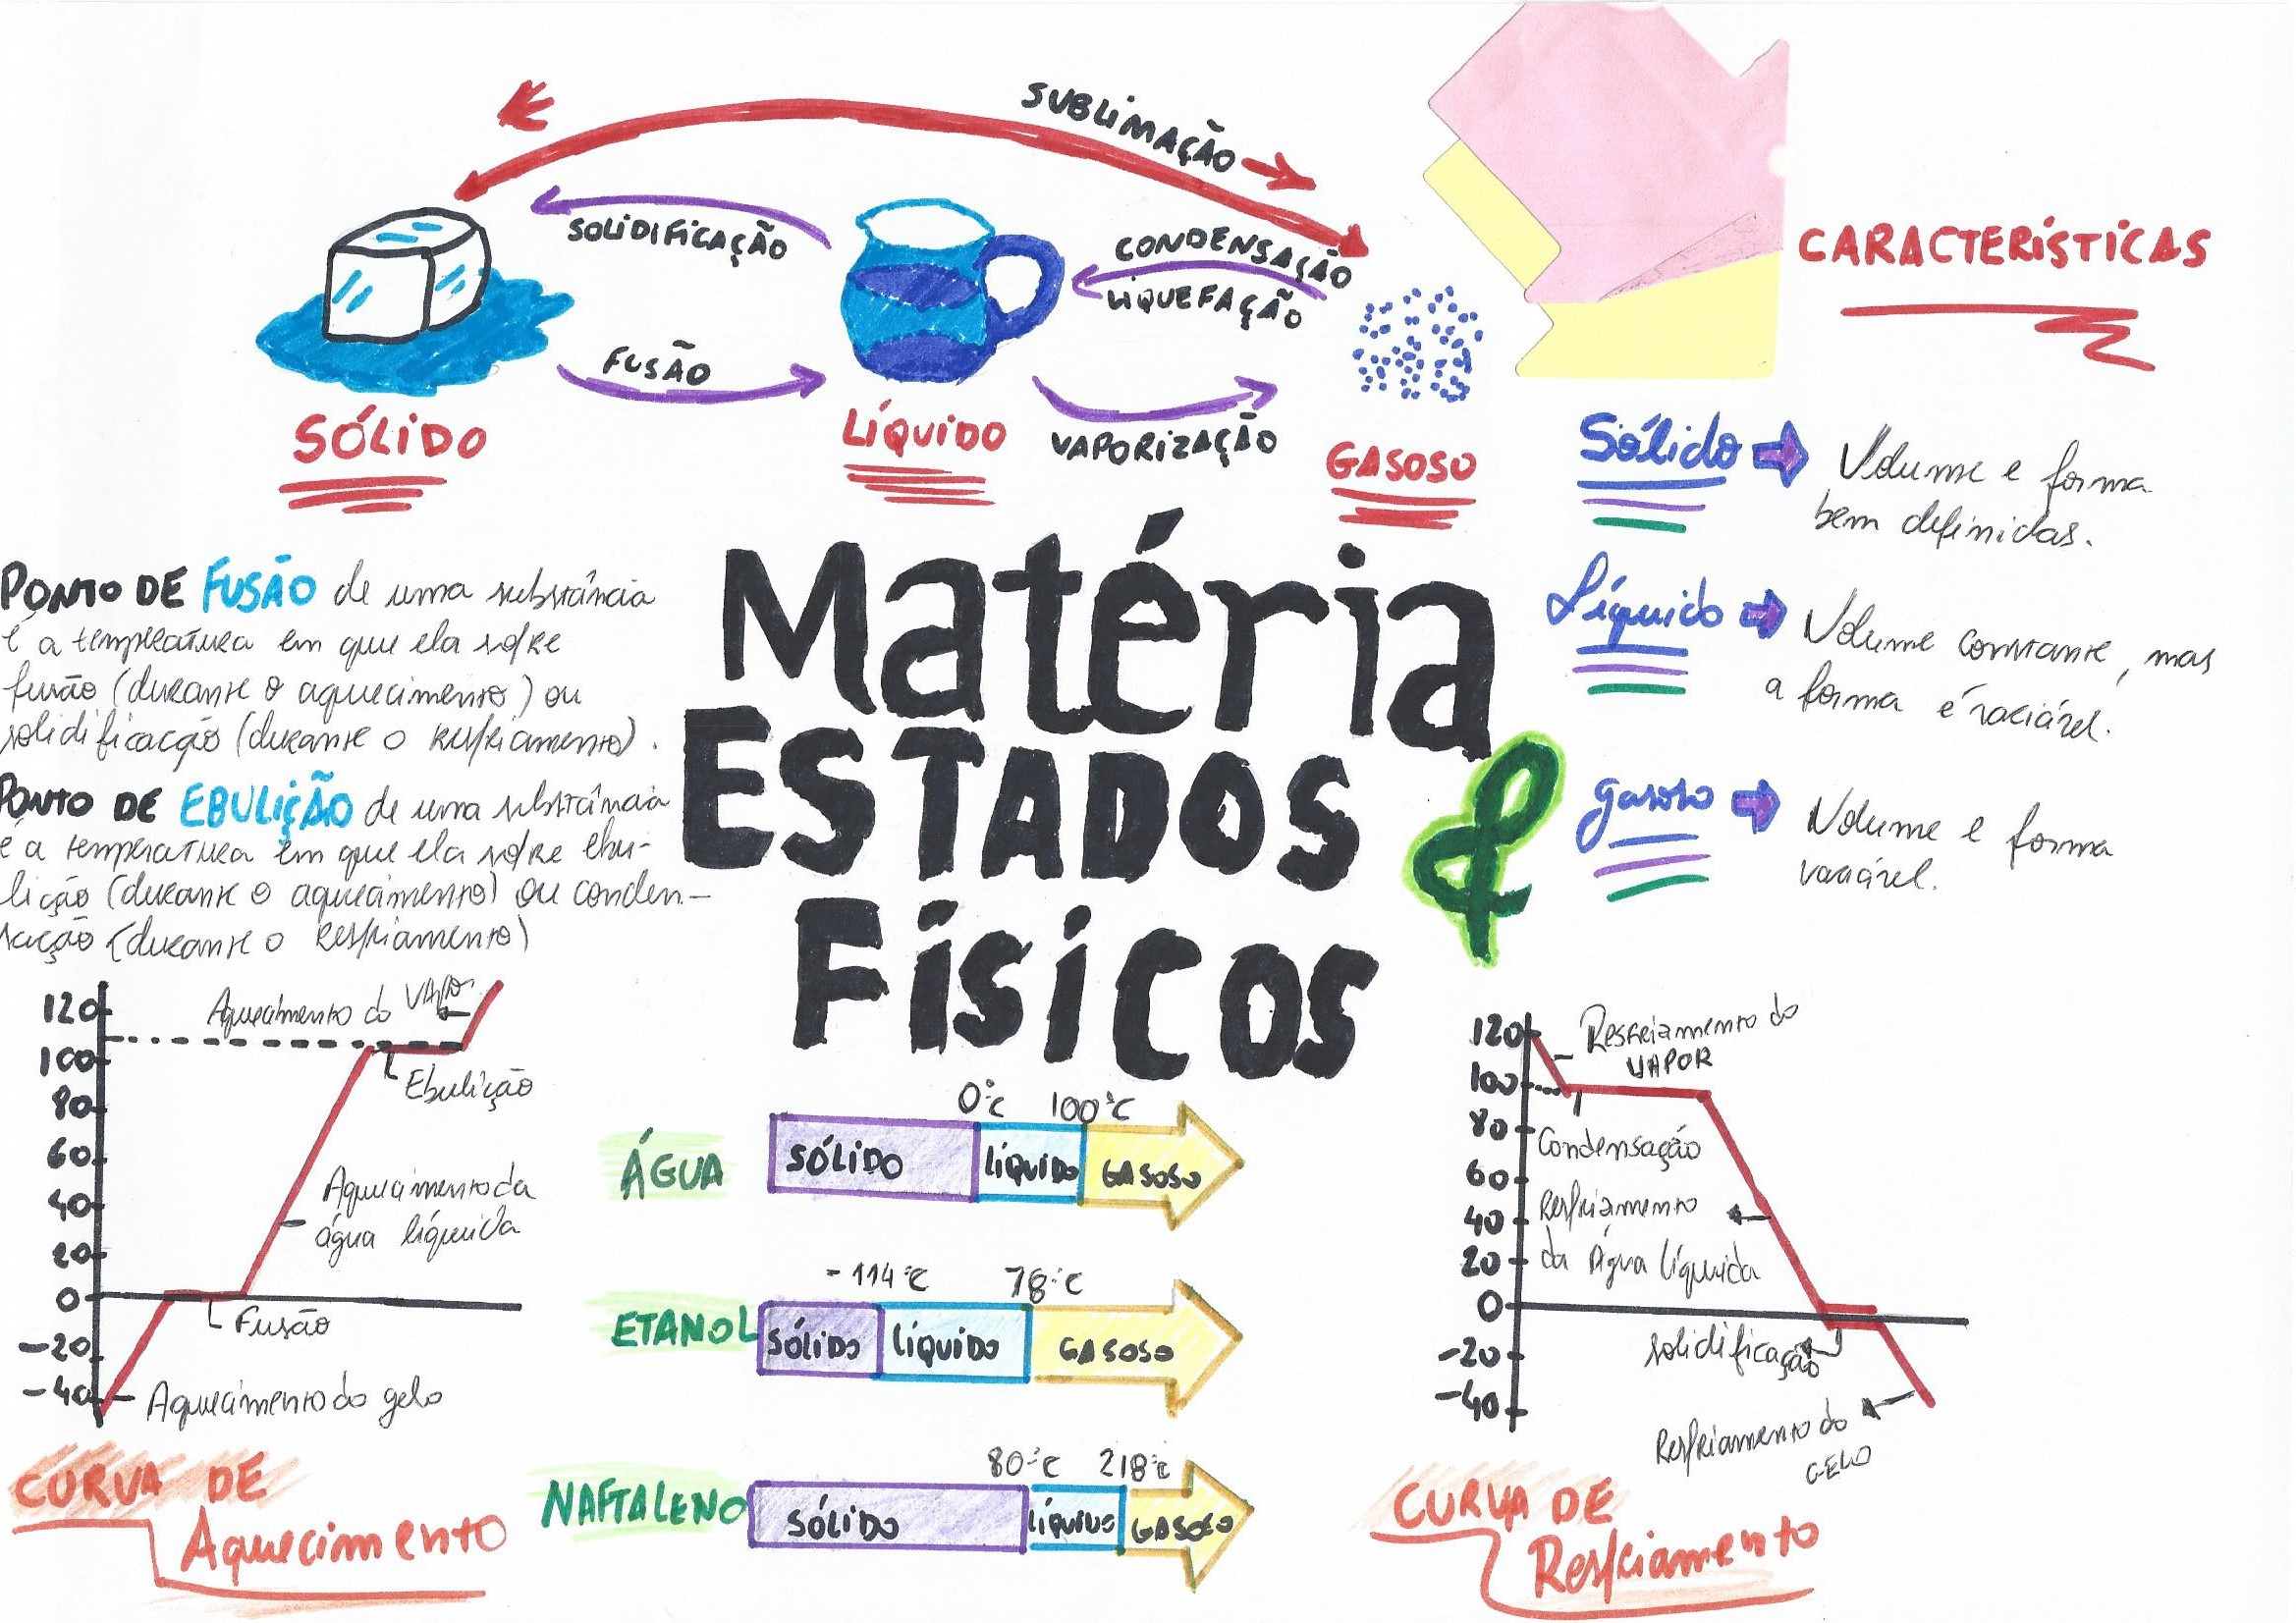 SUBLIMAÇÃO
SOLIDIFICAÇÃO
CONDENSAÇÃO
LIQUEFAÇÃO
FUSÃO
VAPORIZAÇÃO
SÓLIDO
LÍQUIDO
GASOSO
CARACTERÍSTICAS
Sólido
Volume e forma
bem definidas.
Líquido
Volume constante, mas
a forma é variável.
gasoso
Volume e forma
variável.
Matéria
&
ESTADOS
FÍSICOS
PONTO DE FUSÃO de uma substância
é a temperatura em que ela sofre
fusão (durante o aquecimento) ou
solidificação (durante o resfriamento).
PONTO DE EBULIÇÃO de uma substância
é a temperatura em que ela sofre ebu-
lição (durante o aquecimento) ou conden-
sação (durante o resfriamento)
120
100
80
60
40
20
0
-20
-40
Aquecimento do VAPOR
Ebulição
Aquecimento da
água líquida
Fusão
Aquecimento do gelo
CURVA DE
Aquecimento
ÁGUA
0°C 100°C
SÓLIDO LÍQUIDO GASOSO
ETANOL
-114°C 78°C
SÓLIDO LÍQUIDO GASOSO
NAFTALENO
80°C 218°C
SÓLIDO LÍQUIDO GASOSO
120
100
80
60
40
20
0
-20
-40
Resfriamento do
VAPOR
Condensação
Resfriamento
da Água líquida
solidificação
Resfriamento do
GELO
CURVA DE
Resfriamento